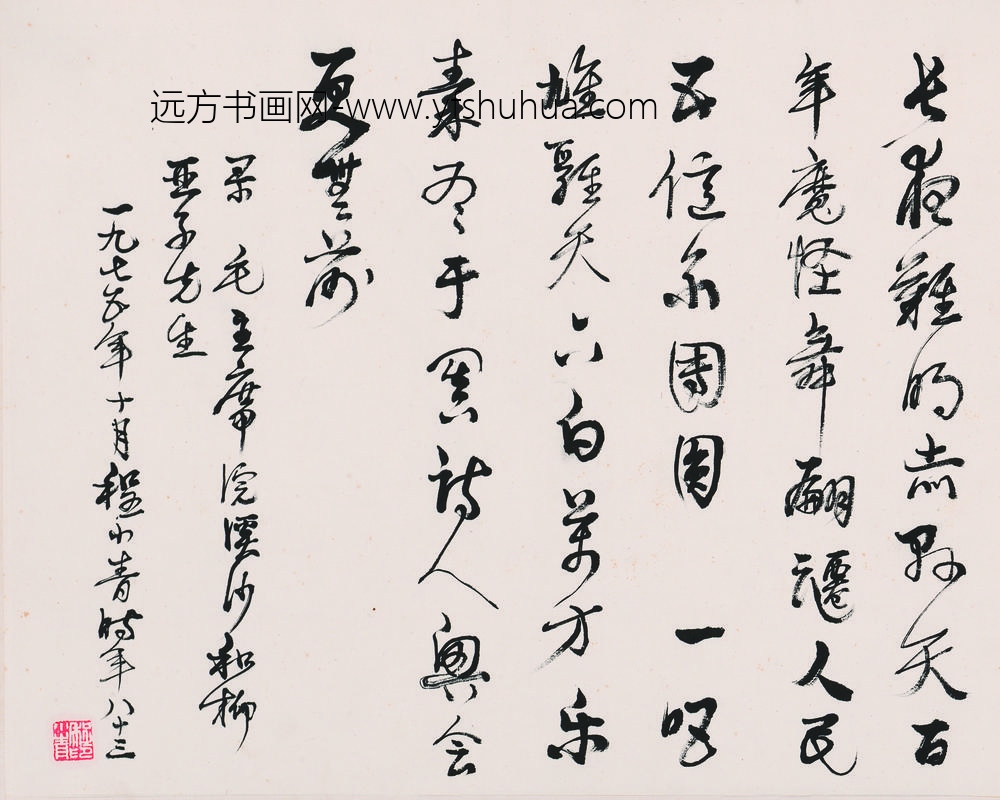 长夜難明赤县天百
年魔怪舞翩躚人民
五億尔團圆 一唱
雄雞天下白萬方乐
奏有于阗诗人興会
更無前
录 毛主席浣溪沙和柳
亚子先生
一九七五年十月程小青時年八十三
远方书画网-www.yfshuhua.com